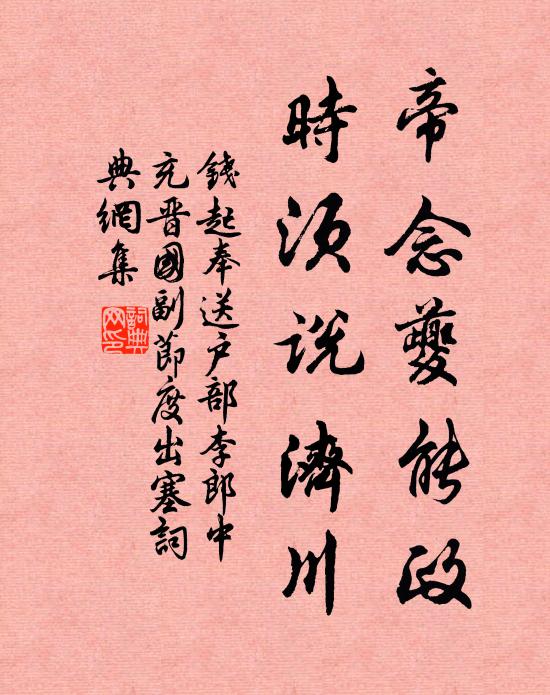 帝念夔能政
時須説濟川
錢起奉送户部李郎中
充晋國副節度出塞詞
典網集
詞典
网印